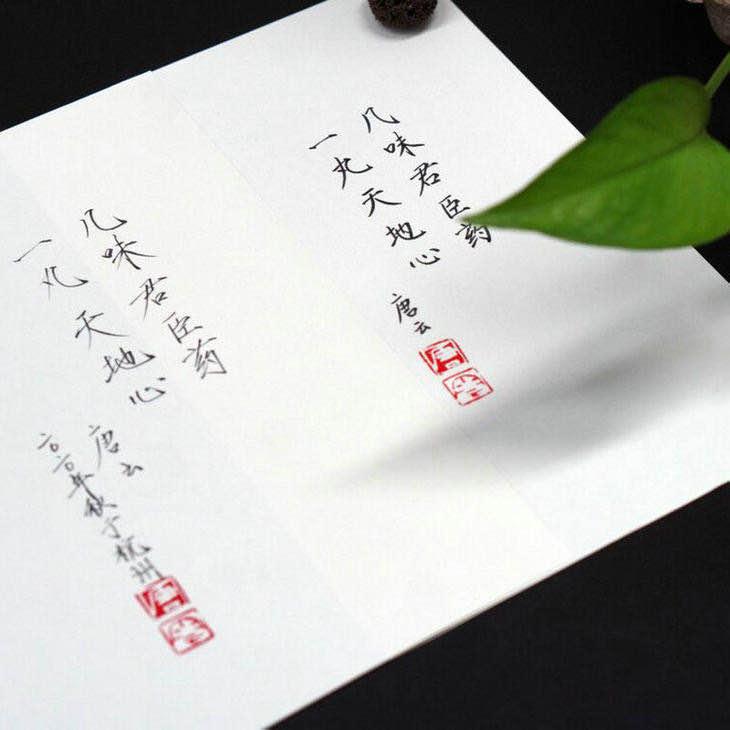 几味君臣药
一丸天地心
唐云
几味君臣药
一丸天地心
唐云
二〇二〇年秋于杭州